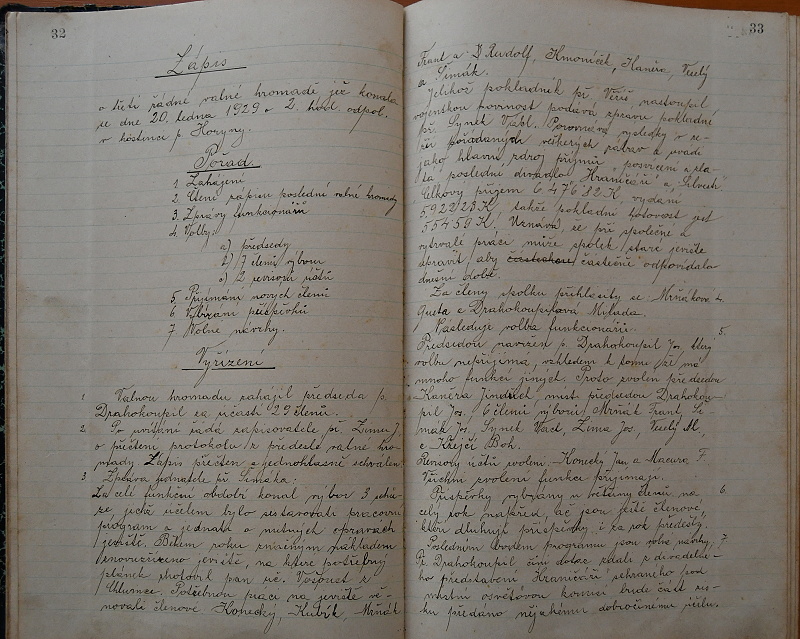 32
Zápis
o třetí řádné valné hromadě již konala
se dne 20. ledna 1929 v 2. hod. odpol.
v hostinci p. Horyny.
Pořad.
1. Zahájení
2. Čtení zápisu poslední valné hromady
3. Zprávy funkcionářů
4. Volby:
a) předsedy
b) 7 členů výboru
c) 2 revisorů účtů
5. Přijímání nových členů
6. Vybírání příspěvků
7. Volné návrhy.
Vyřízení
1 Valnou hromadu zahájil předseda p.
Drahokoupil za účasti 29 členů.
2. Po uvítání žádá zapisovatele př. Zimu J.
o přečtení protokolu z předešlé valné hro-
mady. Zápis přečten a jednohlasně schválen.
3 Zpráva jednatele př. Šimáka:
Za celé funkční období konal výbor 3 schů-
ze, jichž účelem bylo sestavovati pracovní
program a jednati o nutných opravách
jeviště. Během roku značným nákladem
znovuzřízeno jeviště, na které potřebný
plánek zhotovil pan uč. Vošprut z
Chlumce. Potřebnou práci na jeviště vě-
novali členové Konecký, Kubík, Mrňák
33
Frant a D Rudolf, Hmoniček, Kaněra, Veselý
a Šimák.
Jelikož pokladník př. Veriš, nastoupil
vojenskou povinnost podává zprávu pokladní
př. Synek Václ. Porovnává výsledky v re-
ži pořádaných věneckých zábav a uvádí
jako hlavní zdroj příjmů, posvícení a zla-
tá poslední divadlo Hraničáři a „Silvestr"
Celkový příjem 6.476 82 K, vydání
5922 23 K, takže pokladní hotovost jest
554 59 K. Uznává, že při společné a
vytrvalé práci může spolek staré jeviště
opraviti aby částečně odpovídalo
dnešní době.
Za členy spolku přihlásily se: Mrňáková 4.
Gusta a Drahokoupilová Milada.
Následuje volba funkcionářů. 5.
Předsedou navržen p. Drahokoupil Jos, který
volbu nepřijímá, vzhledem k tomu, že má
mnoho funkcí jiných. Proto zvolen předsedou
Kaněra Jindřich, míst. předsedou Drahokou-
pil Jos. 6 členů výboru: Mrňák Frant, Ši-
mák Jos, Synek Václ, Zima Jos, Veselý Al,
a Krejčí Boh.
Revisory účtů zvoleni: Konecký Jan a Macura F.
Všichni zvolení funkci přijímají.
Příspěvky vybrány u většiny členů na 6.
celý rok napřed, ač jsou ještě členové,
kteří dluhují příspěvky i za rok předešlý.
Posledním bodem programu jsou volné návrhy. 7.
Př. Drahokoupil činí dotaz zdali z divadelní-
ho představení Hraničáři sehraného pod
místní osvětovou komisí bude část zis-
ku předáno nějakému dobročinnému účelu.